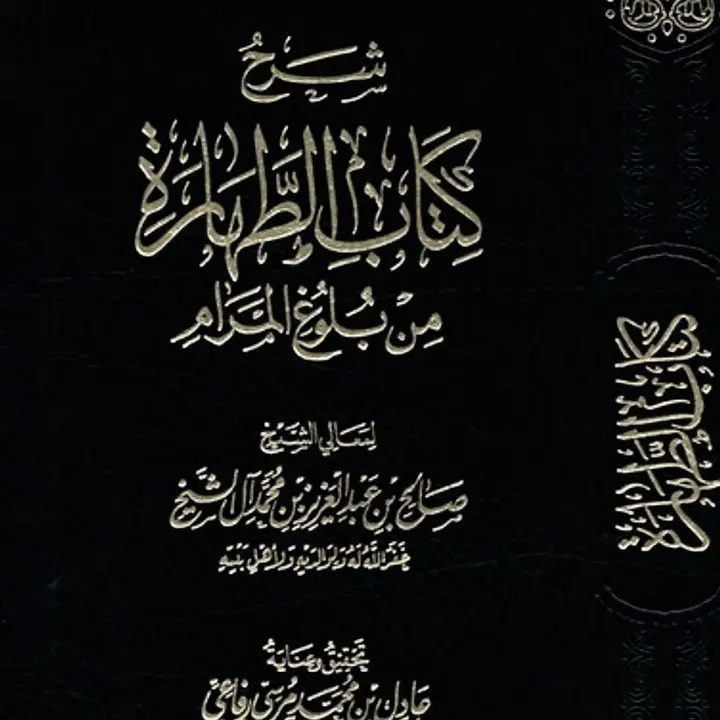 شرح
كتاب الطهارة
من بلوغ المرام
لمعالي الشيخ
صالح بن عبد العزيز بن محمد آل الشيخ
غفر الله له ولوالديه ولأهل بيته
تحقيق وعناية
عادل بن محمد مرسي رفاعي
كتاب الطهارة